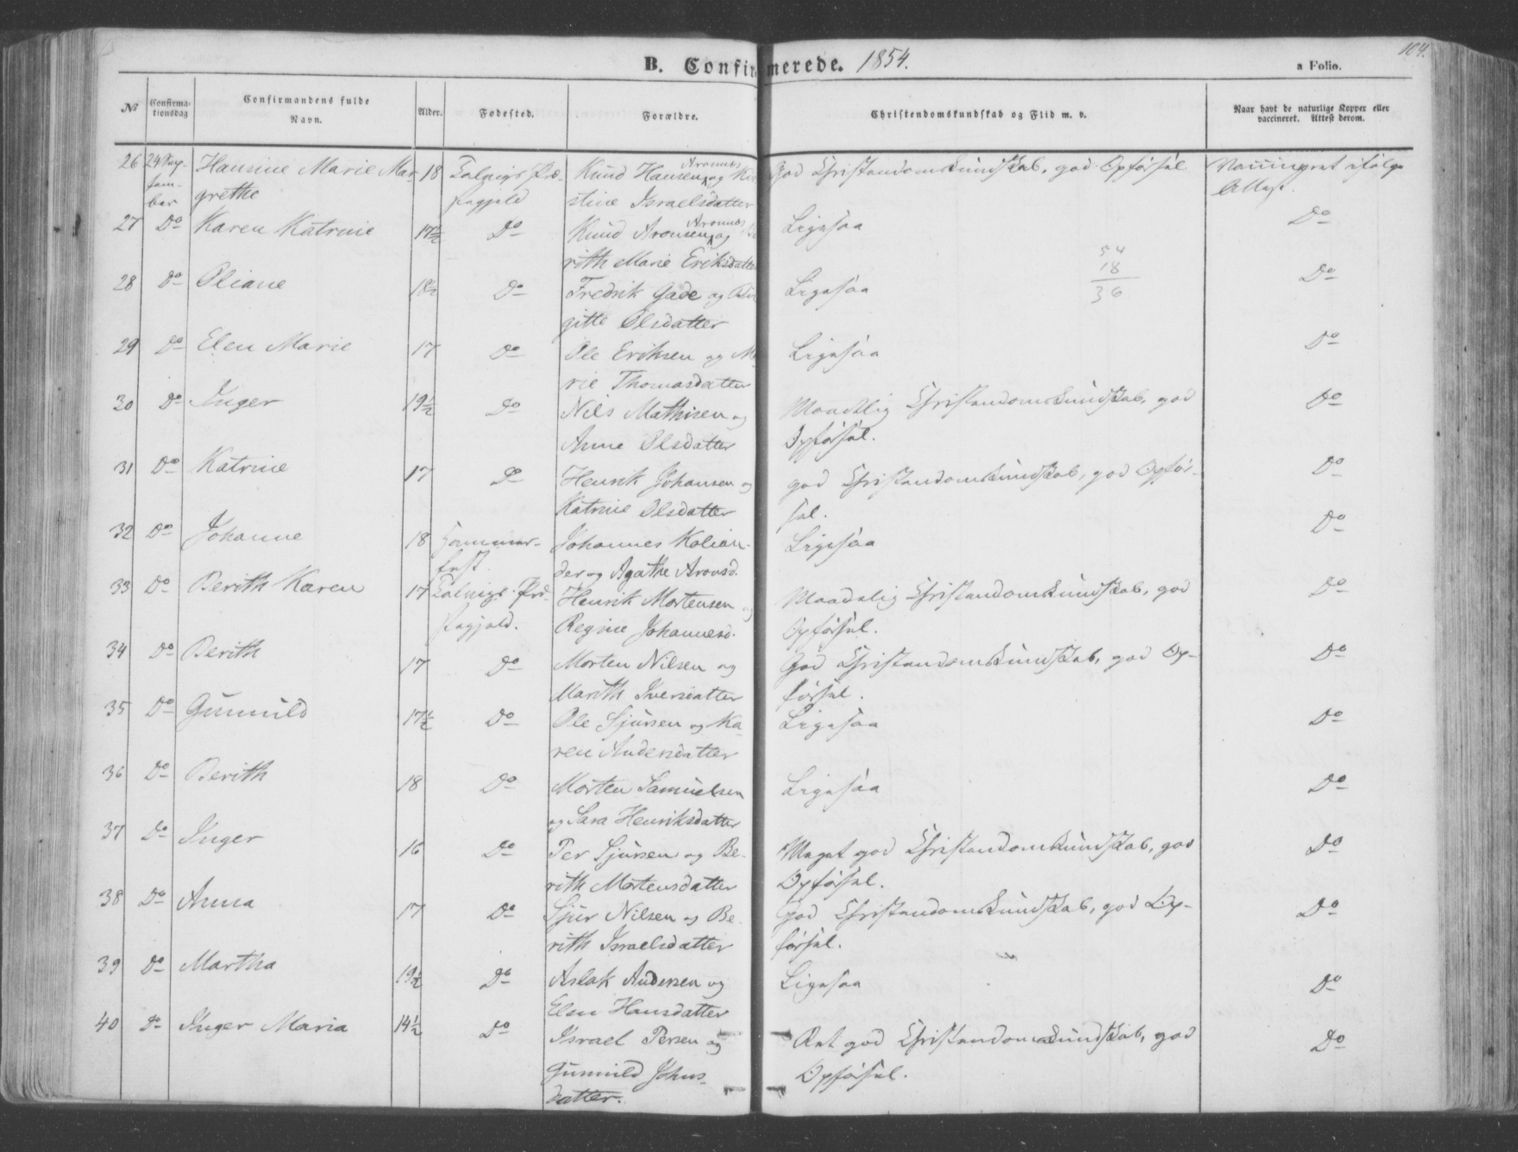 104.
B. Confirmerede. 1854.
a Folio.
No
Confirma-
tionsdag
Confirmandens fulde
Navn.
Alder.
Fødested.
Forældre.
Christendomskundskab og Flid m. v.
Naar havt de naturlige Kopper eller
vaccineret. Attest derom.
26 24 Sep- Hansine Marie Mar- 18 Talvigs Præ- Knud Hansen Aronnæs og Kir- God Christendomskundskab, god Opførsel Vaccineret ifølge
tem- grethe stegjeld stine Israelsdatter Attest.
ber
27 Do Karen Katrine 17½ Do Knud Aronsen Aronnæs og Ligesaa Do
rith Marie Eriksdatter
54
18
36
28 Do Oliane 18½ Do Fredrik Gade og Ligesaa Do
gitte Olsdatter
29 Do Elen Marie 17 Do Ole Eriksen og Ma Ligesaa Do
rie Thomasdatter
30 Do Inger 19½ Do Nils Mathisen og Maadelig Christendomskundskab, god Do
Anne Olsdatter Opførsel.
31 Do Katrine 17 Do Henrik Johansen og god Christendomskundskab, god Opfør- Do
Katrine Olsdatter sel.
32 Do Johanne 18 Hammer- Johannes Kolian- Ligesaa Do
fest der og Agathe Aronsd.
33 Do Berith Karen 17 Talvigs Præ- Henrik Mortensen og Maadelig Christendomskundskab, god Do
stegjeld. Regine Johannesd. Opførsel.
34 Do Berith 17 Do Morten Nilsen og God Christendomskundskab, god Op- Do
Marith Iversdatter førsel.
35 Do Gunnild 17½ Do Ole Sjursen og Ka Ligesaa Do
ren Andersdatter
36 Do Berith 18 Do Morten Samuelsen Ligesaa Do
og Sara Henriksdatter
37 Do Inger 16 Do Per Sjursen og Be- Meget god Christendomskundskab, god Do
rith Mortensdatter Opførsel.
38 Do Anna 17 Do Sjur Nilsen og Be- God Christendomskundskab, god Op- Do
rith Israelsdatter førsel.
39 Do Martha 19½ Do Aslak Andersen og Ligesaa Do
Elen Hansdatter
40 Do Inger Maria 14½ Do Israel Persen og Ret god Christendomskundskab, god Do
Gunnild Johns- Opførsel.
datter.